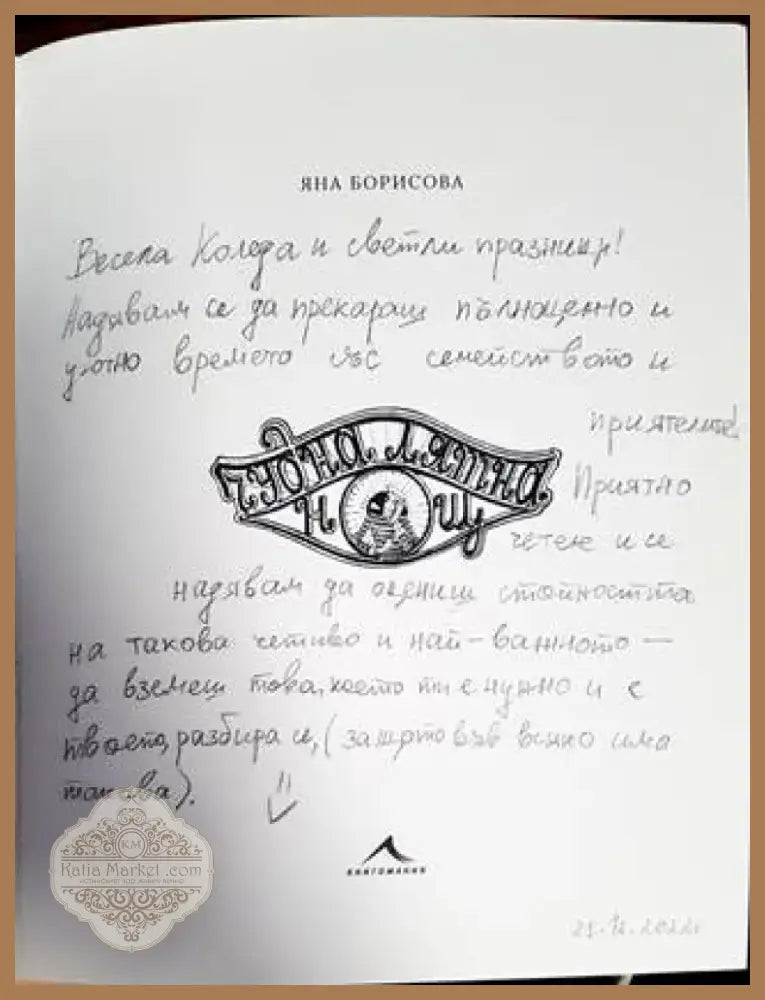 ЯНА БОРИСОВА
Весела Коледа и светли празници!
Надявам се да прекараш пълноценно и
уютно времето със семейството и
приятелите!
ЧУДНА ЛЯТНА
НОЩ
Приятно
четене и се
надявам да оцениш стойността
на такова четиво и най-важното —
да вземеш това, което ти е нужно и е
твоето, разбира се, (защото във всяко има
такова).
КНИГОМАНИЯ
KM
Katia Market .com